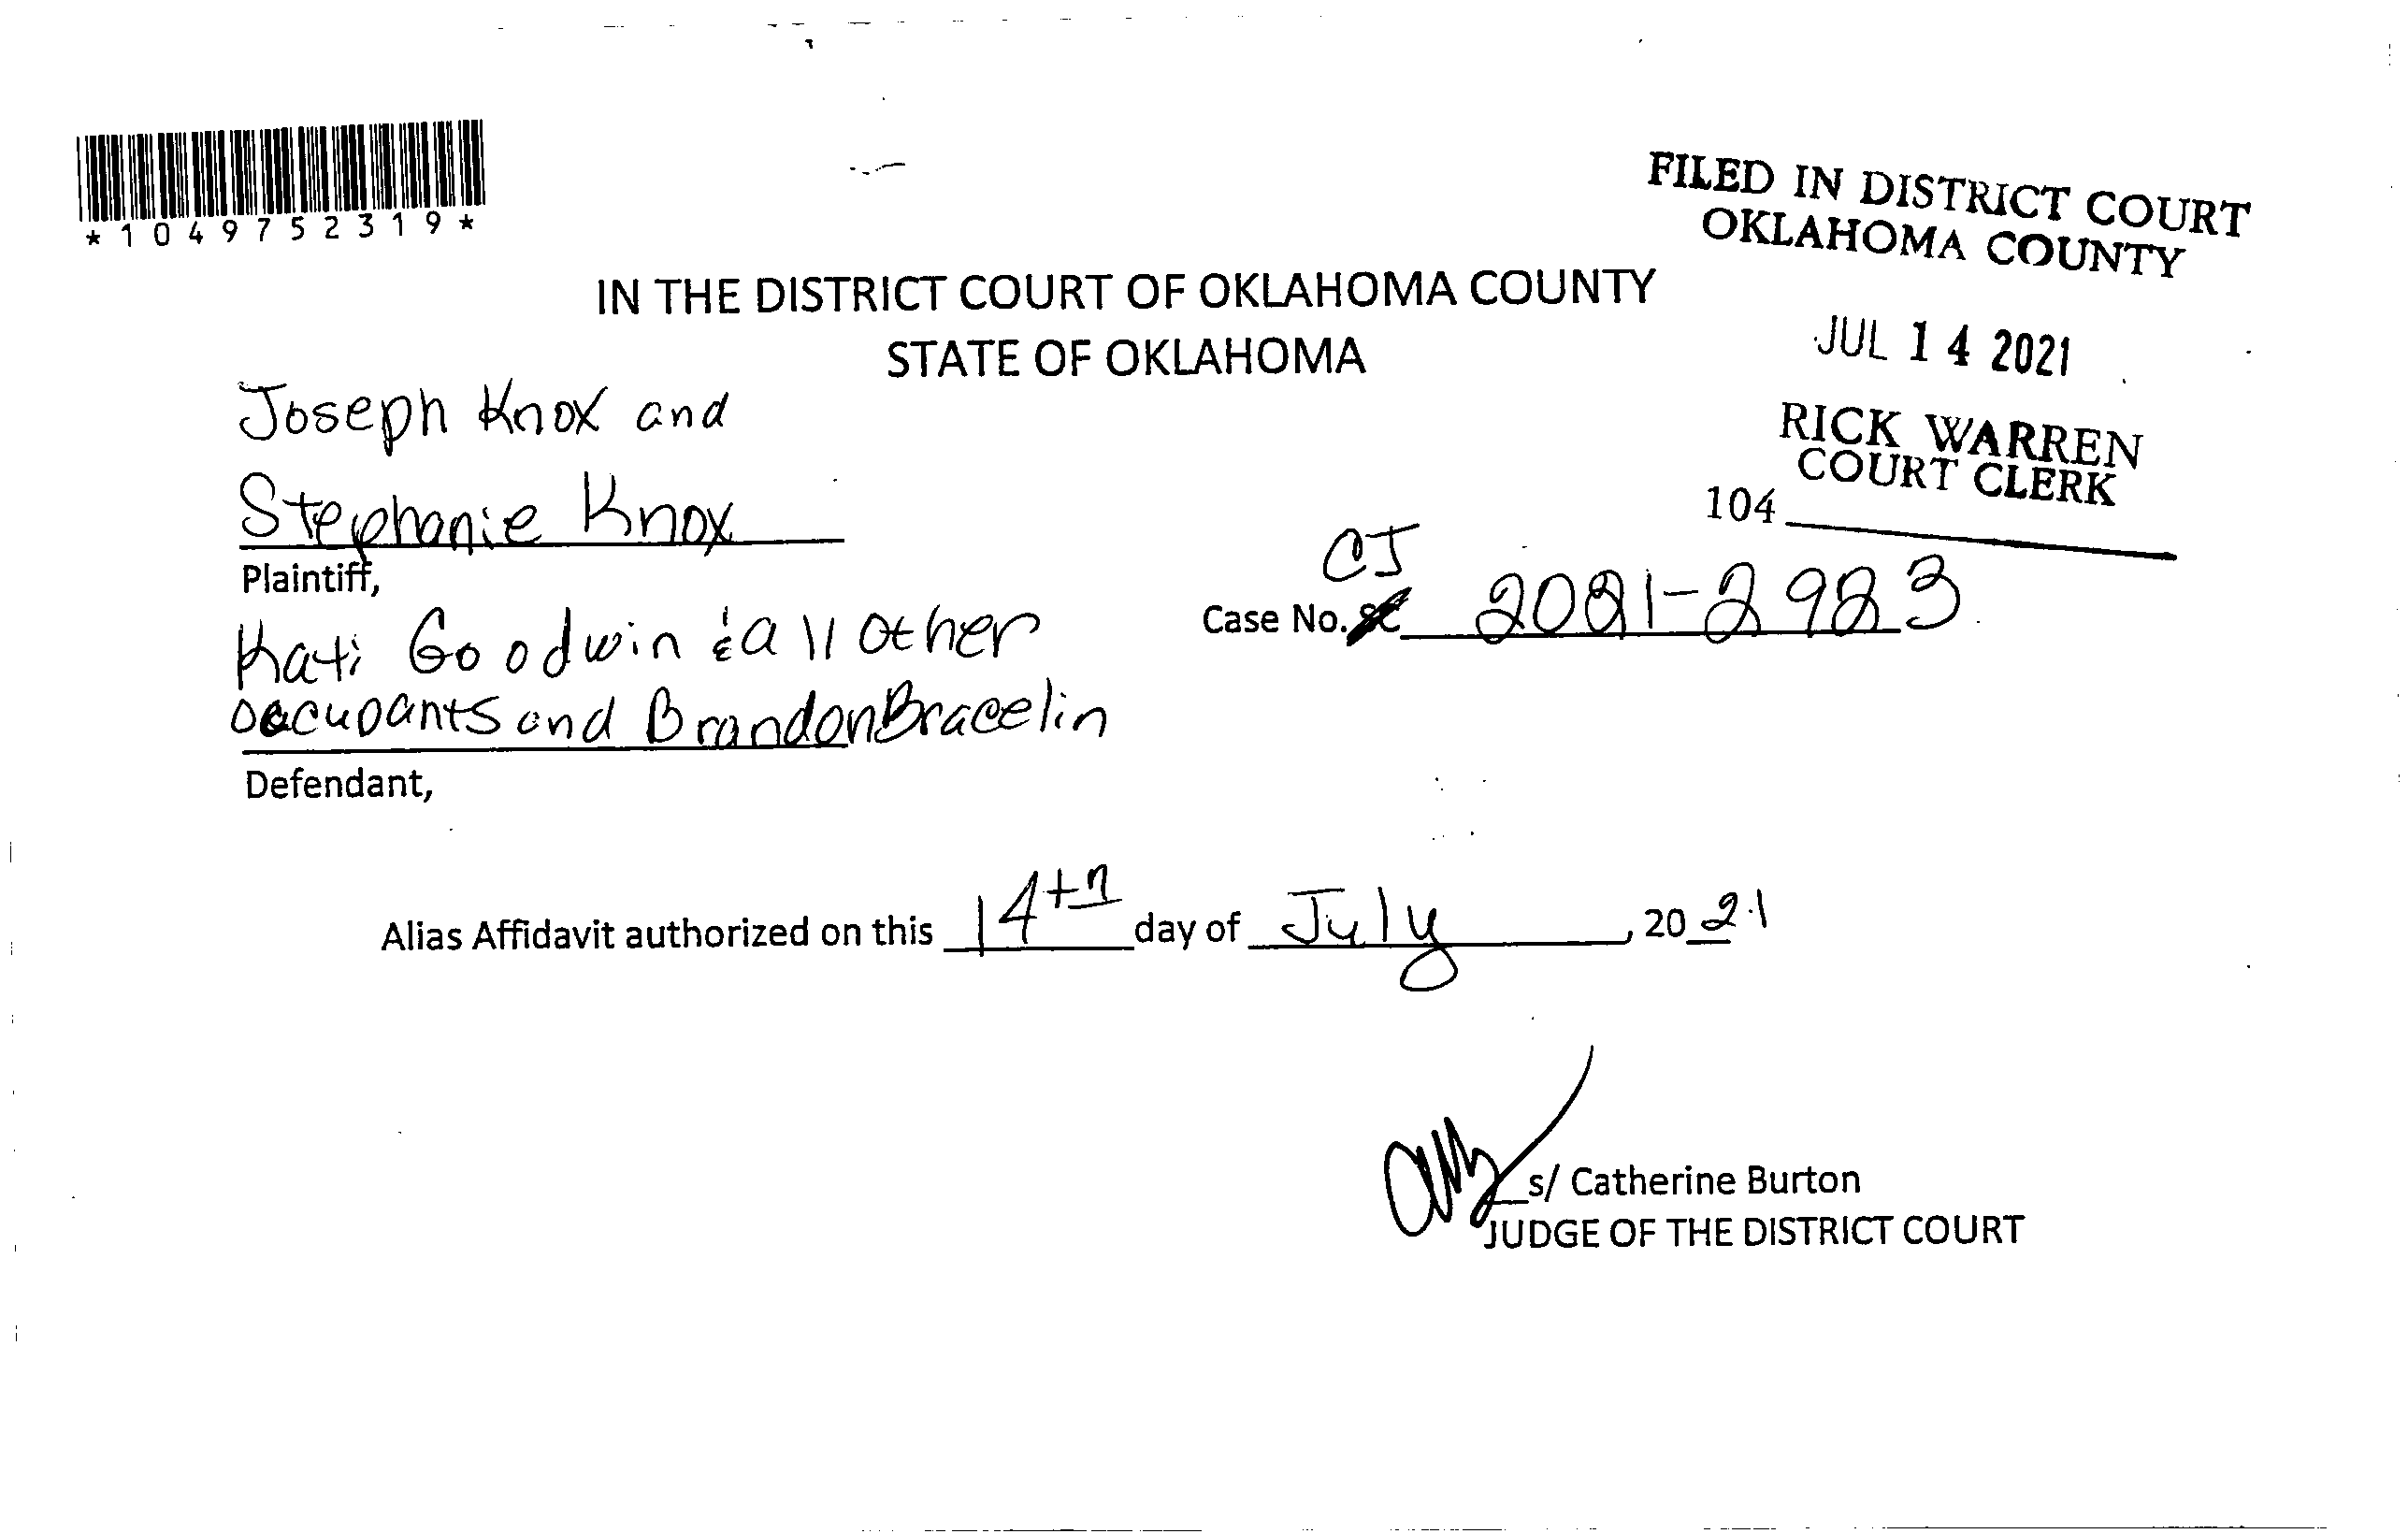 *1049752319*
FILED IN DISTRICT COURT
OKLAHOMA COUNTY
JUL 14 2021
RICK WARREN
COURT CLERK
104
IN THE DISTRICT COURT OF OKLAHOMA COUNTY
STATE OF OKLAHOMA
Joseph Knox and
Stephanie Knox
Plaintiff,
CJ
Case No. 2021-2923
Kati Goodwin & all other
occupants and Brandon Bracelin
Defendant,
Alias Affidavit authorized on this 14th day of July, 2021
s/ Catherine Burton
JUDGE OF THE DISTRICT COURT